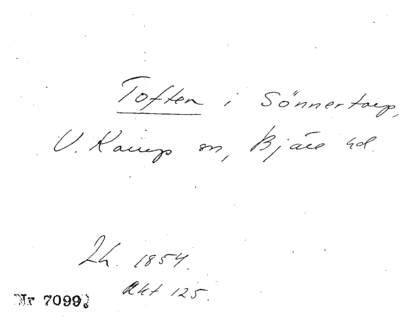 Toften i Sönnertorp,
V. Karup sn, Bjäre hd.
Lh. 1854.
Akt 125.
Nr 7099